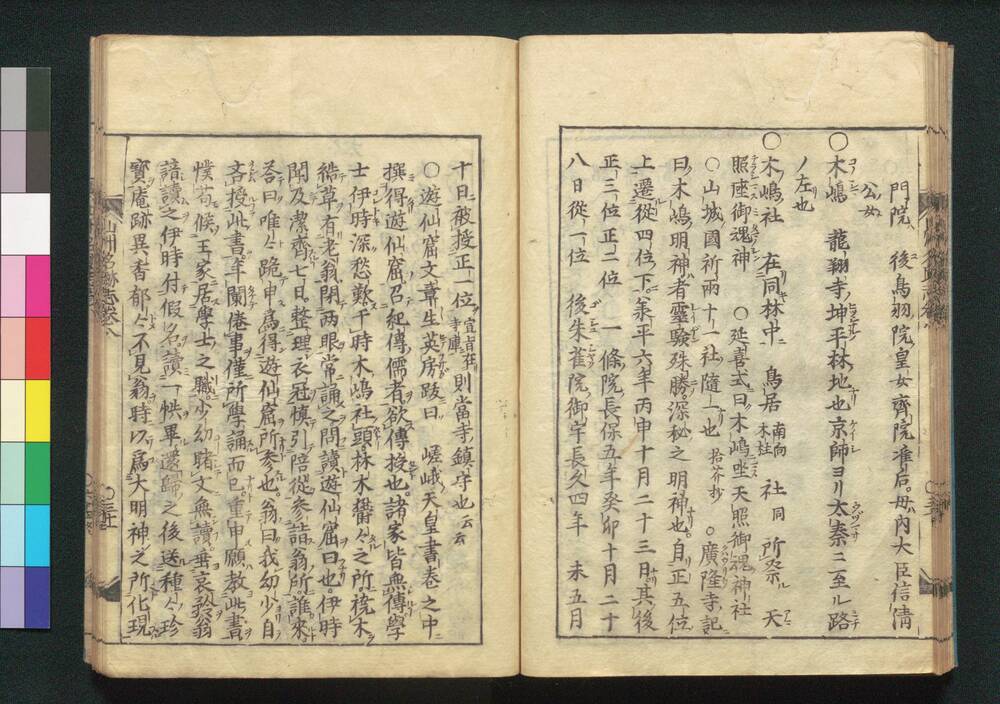 門院 後鳥羽院皇女齊院准后。母ハ内大臣信清
公ノ女
○木嶋 龍翔寺坤平林地也京師ヨリ太秦ニ至ル路
ノ左也
○木嶋社 在同林中 鳥居 南向木柱 社 同 所祭 天
照座御魂神 ○延喜式ニ曰木嶋坐天照御魂神社
○山城國祈雨十一社隨一也 拾芥抄 ○廣隆寺ノ記ニ
曰木嶋明神者靈驗殊勝深秘之明神也。自正五位
上遷從四位下。承平六年丙申十月二十三日其後
正三位正二位 一條院長保五年癸卯十月二十
八日從一位 後朱雀院御宇長久四年 未五月
十日被授正一位 宣旨在寺庫 則當寺ノ鎮守也云云
○遊仙窟文章生英房跋曰 嵯峨天皇書卷之中
撰得遊仙窟召紀傳儒者欲傳授也。諸家皆無傳學
士伊時深愁歎于時木嶋社頭林木欝々之所燒木
結草有老翁閉兩眼常誦之問讀遊仙窟曰也。伊時
聞及潔齊七日。整理衣冠慎引陪從參詣翁所。誰來
答曰唯々跪申爲得遊仙窟所參也。翁曰我幼少自
吝授此書年闌倦事僅所學誦而已。重申願教此書
懞苟候王家居學士之職。少幼賭文無讀。垂哀矜翁
諳讀之伊時付假名讀一帙畢還歸之後送種々珍
寳庵跡異香郁々不見翁時以爲大明神之所化現
山州名跡志卷八